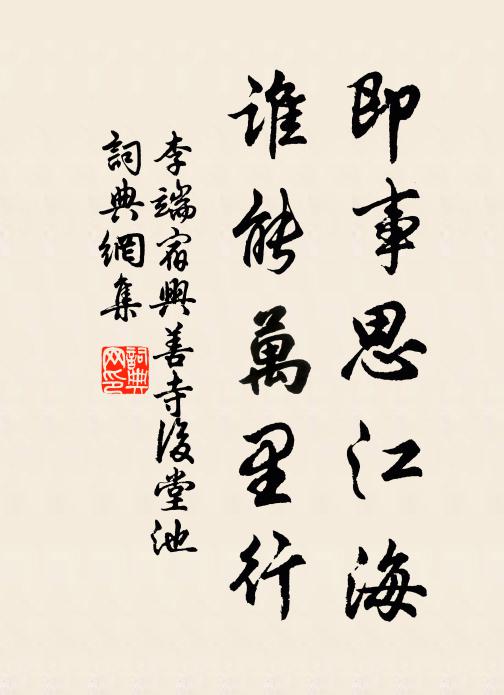 即事思江海
誰能萬里行
李端宿興善寺後堂池
詞典網集
詞典网印